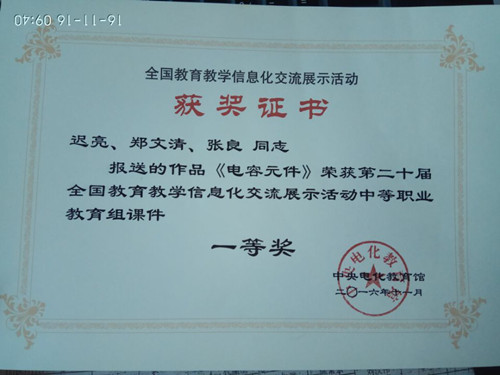 16-11-16 09:40
全国教育教学信息化交流展示活动
获奖证书
迟亮、郑文清、张良 同志
报送的作品《电容元件》荣获第二十届
全国教育教学信息化交流展示活动中等职业
教育组课件
一等奖
中央电化教育馆
二〇一六年十一月